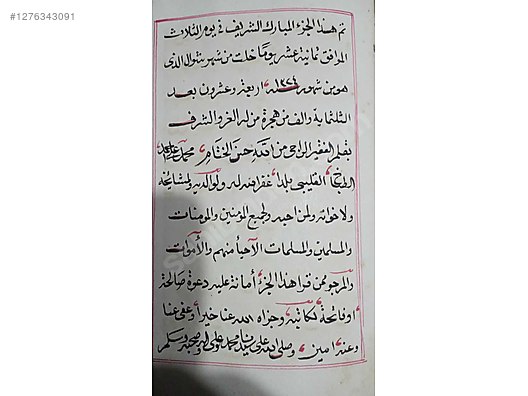 #1276343091
تم هذا الجزء المبارك الشريف في يوم الثلاث
الموافق ثمانية عشر يوما خلت من شهر شوال الذى
هو من شهور سنة ١٣٢٤ اربعة وعشرون بعد
الثلثماية والف من هجرة من له العز والشرف
بقلم الفقير الراجى من الله حسن الختام محمد
الطباخ القليبى بلدا غفر الله له ولوالديه ولمشايخه
ولاخوانه ولمن احبه ولجميع المؤمنين والمومنات
والمسلمين والمسلمات الأحيأ منهم والأموات
والمرجو ممن قرا هذا الجزء أمانة عليه دعوة صالحة
او فاتحة لكاتبه وجزاه الله عنا خيرا وعفى عنا
وعنه امين وصلى الله على سيدنا محمد وعلى اله وصحبه وسلم